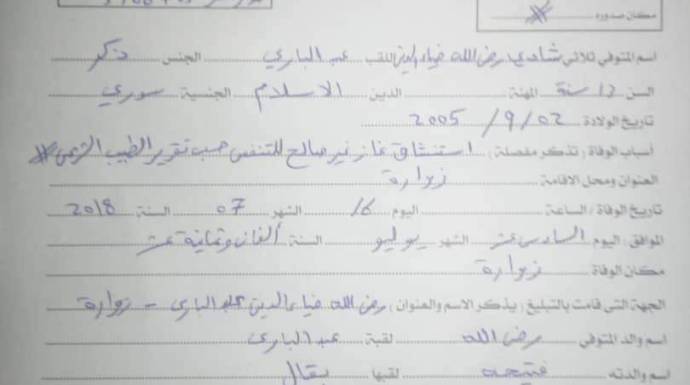 مكان صدوره
اسم المتوفي ثلاثي شادي رض الله ضياء الدين اللقب عبد الباري الجنس ذكر
السن 13 سنة المهنة الدين الاسلام الجنسية سوري
تاريخ الولادة 02 / 9 / 2005
أسباب الوفاة ( تذكر مفصلة ) استنشاق غاز غير صالح للتنفس حسب تقرير الطبيب الشرعي
العنوان ومحل الاقامة زوارة
تاريخ الوفاة / الساعة اليوم 16 الشهر 07 السنة 2018
الموافق : اليوم السادس عشر الشهر يوليو السنة ألفان وثمانية عشر
مكان الوفاة زوارة
الجهة التى قامت بالتبليغ ( يذكر الاسم والعنوان ) رض الله ضياء الدين عبد الباري - زوارة
اسم والد المتوفي رض الله لقبة عبد الباري
اسم والدته فتيحه لقبها بقال